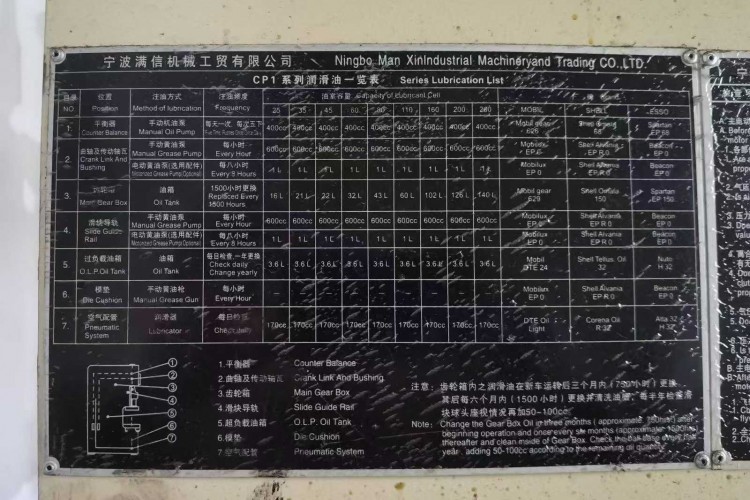 宁波满信机械工贸有限公司 Ningbo Man XinIndustrial Machineryand Trading CO.,LTD.
CP1 系列润滑油一览表 Series Lubrication List
NO. 位置 Position 注油方式 Method of lubrication 注油频度 Frequency 油室容量 Capacity of lubricant Cell
25 35 45 60 80 110 160 200 260 MOBIL SHELL ESSO
1. 平衡器 Counter Balance 手动机油泵 Manual Oil Pump 每天一次, 每次五下 400cc 400cc 400cc 400cc 400cc 400cc 400cc 400cc 400cc Mobil gear 626 68 Beacon EP 68
2. 曲轴及传动轴瓦 Crank Link And Bushing 手动黄油泵 Manual Grease Pump 每小时 Every Hour 600cc 600cc 600cc 600cc 600cc 600cc 600cc 600cc 600cc Mobilux EP 0 Shell Alvania EP R 0 Beacon EP 0
电动黄油泵(选用配件) Motorized Grease Pump(Optional) 每八小时 Every 8 Hours 1 L 1 L 1 L 1 L 1 L 1 L 1 L 1 L 1 L Mobilux EP 0 Shell Alvania EP R 0 Beacon EP 0
3. 齿轮箱 Main Gear Box 油箱 Oil Tank 1500小时更换 Replaced Every 1500 Hours 16 L 21 L 22 L 32 L 43 L 60 L 102 L 126 L 140 L Mobil gear 629 Shell Omala 150 Spartan EP 150
4. 滑块导轨 Slide Guide Rail 手动黄油泵 Manual Grease Pump 每小时 Every Hour 600cc 600cc 600cc 600cc 600cc 600cc 600cc 600cc 600cc Mobilux EP 0 Shell Alvania EP R 0 Beacon EP 0
电动黄油泵(选用配件) Motorized Grease Pump(Optional) 每八小时 Every 8 Hours 1L 1L 1L 1L 1L 1L 1L 1L 1L Mobilux EP 0 Shell Alvania EP R 0 Beacon EP 0
5. 过负载油箱 O.L.P.Oil Tank 油箱 Oil Tank 每日检查,一年更换 Check daily Change yearly 3.6 L 3.6 L 3.6 L 3.6 L 3.6 L 3.6 L 3.6 L 3.6 L 3.6 L Mobil DTE 24 Shell Tellus. Oil 32 Nuto H 32
6. 模垫 Die Cushion 手动黄油枪 Manual Grease Gun 每小时 Every Hour Mobilux EP 0 Shell Alvania EP R 0 Beacon EP 0
7. 空气配管 Pneumatic System 润滑器 Lubricator 每日检查 Check daily 170cc 170cc 170cc 170cc 170cc 170cc 170cc 170cc 170cc DTE Oil Light Corena Oil R 32 H 32
① ② ③ ④ ⑤ ⑥ ⑦
1.平衡器 Counter Balance
2.曲轴及传动轴瓦 Crank Link And Bushing
3.齿轮箱 Main Gear Box
4.滑块导轨 Slide Guide Rail
5.超负载油箱 O.L.P.Oil Tank
6.模垫 Die Cushion
7.空气配管 Pneumatic System
注意: 齿轮箱内之润滑油在新车运转后三个月内 (750小时) 更换
其后每六个月内 (1500 小时) 更换并清洗油壶, 每半年检查滑
块球头座视情发再加50-100cc.
Note: Change the Gear Box Oil in three months ( approximate. 750hrs) after
beginning operation and once every six months (approximate 1500hrs)
thereafter and clean inside of Gear Box. Check the ball base every half
year adding 50-100cc according to the remaining oil quality.